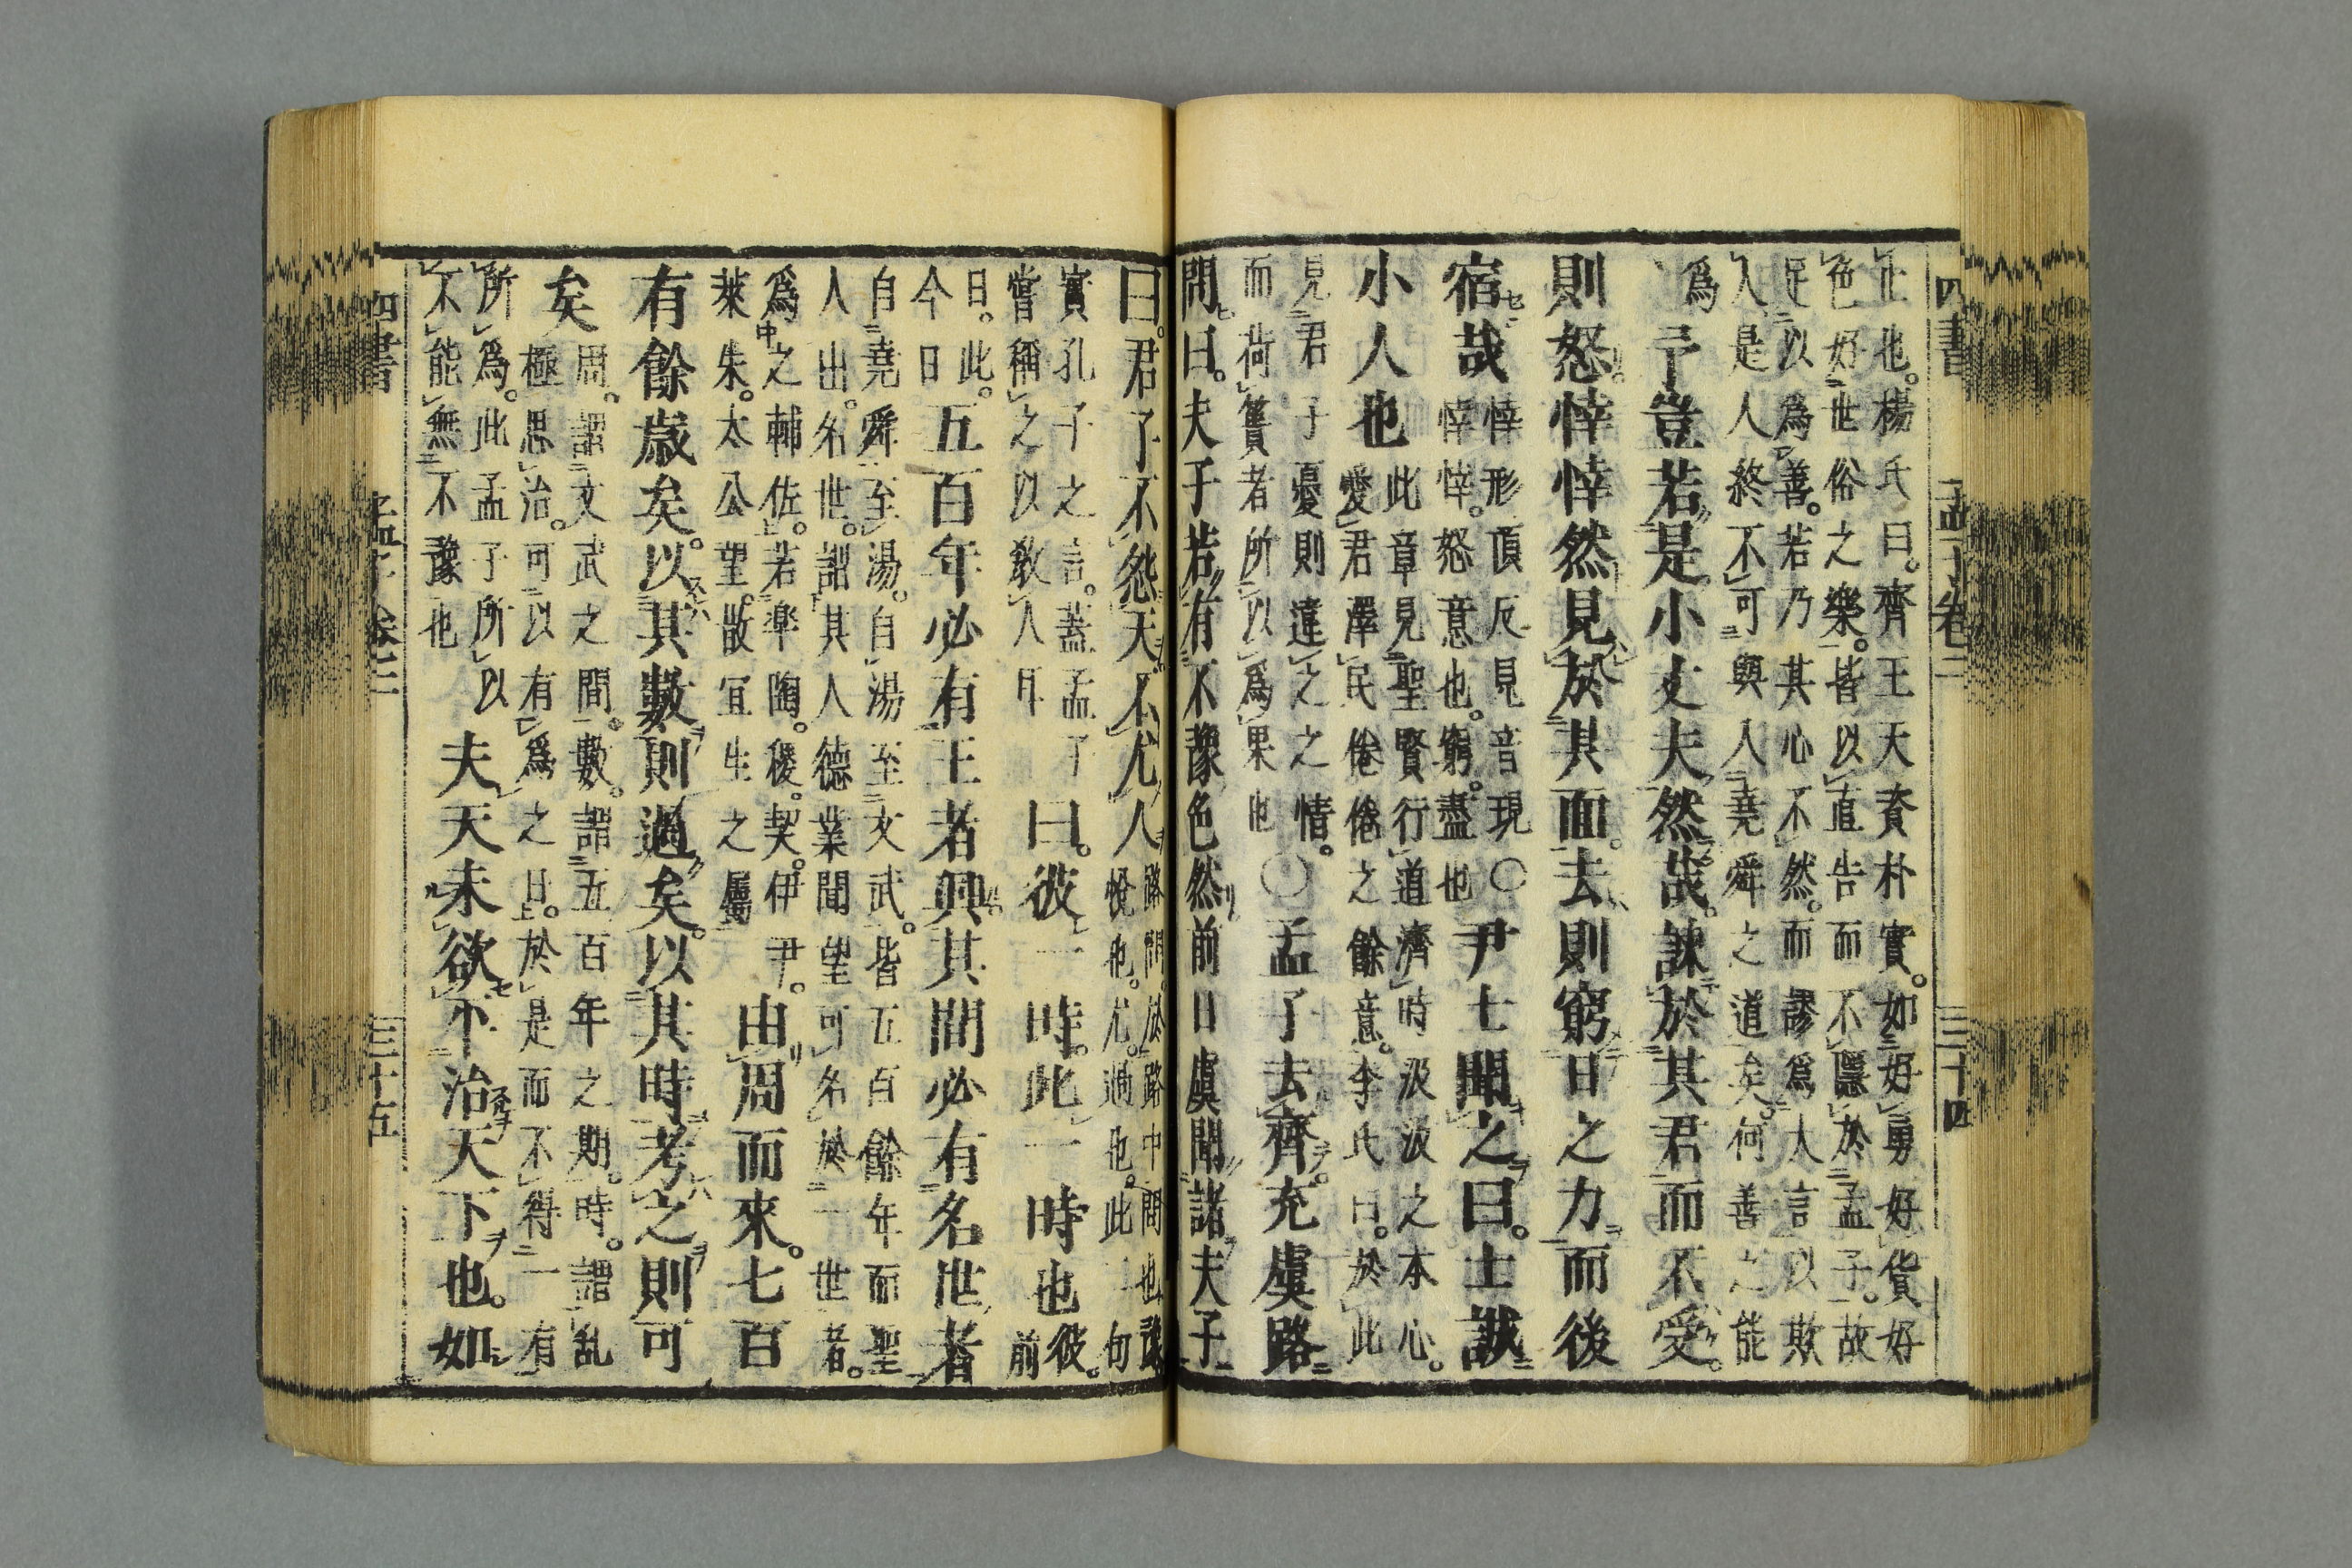 四書 孟子卷二 三十四
正也。楊氏曰。齊王天資朴實。如好勇好貨好
色好世俗之樂。皆以直告而不隱於孟子。故
足以爲善。若乃其心不然。而謬爲大言以欺
人。是人終不可與入堯舜之道矣。何善之能
爲
予豈若是小丈夫然哉。諫於其君而不受。
則怒。悻悻然見於其面。去則窮日之力而後
宿哉
悻形頂反見音現○
悻悻。怒意也。窮。盡也
尹士聞之曰。士誠
小人也
此章見聖賢行道濟時汲汲之本心。
愛君澤民惓惓之餘意。李氏曰。於此
見君子憂則違之之情。
而荷蕢者所以爲果也
○孟子去齊。充虞路
問曰。夫子若有不豫色然前日虞聞諸夫子
曰。君子不怨天。不尤人
路問。於路中問也豫
悅也。尤。過也。此二句
實孔子之言。蓋孟子
嘗稱之以敎人耳
曰。彼一時。此一時也
彼。前
日。此。
今日
五百年必有王者興其間必有名世者
自堯舜至湯。自湯至文武。皆五百餘年而聖
人出。名世。謂其人德業聞望可名於一世者。
爲之輔佐。若皐陶。稷。契。伊尹。
萊朱。太公望。散宜生之屬
由周而來。七百
有餘歲矣。以其數則過矣。以其時考之則可
矣
周。謂文武之間。數。謂五百年之期。時。謂乱
極思治。可以有爲之日。於是而不得一有
所爲。此孟子所以
不能無不豫也
夫天未欲不治天下也。如
四書 孟子卷二 三十五